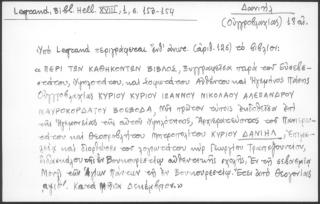 Legrand, Bibl. Hell. XVIII, 1, σ. 152-154
Δανιήλ
(Οὑγγροβλαχίας) 18 αἰ.
Ὑπὸ Legrand περιγράφεται ἔνθ' ἀνωτ. (ἀριθ. 126) τὸ βιβλίον:
«ΠΕΡΙ ΤΩΝ ΚΑΘΗΚΟΝΤΩΝ ΒΙΒΛΟΣ, Συγγραφεῖσα παρὰ τοῦ Εὐσεβε-
στάτου, Ὑψηλοτάτου, καὶ Σοφωτάτου Αὐθέντου καὶ Ἡγεμόνος Πάσης
Οὑγγροβλαχίας ΚΥΡΙΟΥ ΚΥΡΙΟΥ ΙΩΑΝΝΟΥ ΝΙΚΟΛΑΟΥ ΑΛΕΞΑΝΔΡΟΥ
ΜΑΥΡΟΚΟΡΔΑΤΟΥ ΒΟΕΒΟΔΑ, Νῦν πρῶτον τύποις ἐκδοθεῖσα ἐπὶ
τῆς Ἡγεμονείας τῆς αὐτοῦ Ὑψηλότητος, Ἀρχιερατεύοντος τοῦ Πανιερω-
τάτου καὶ Θεοπροβλήτου Μητροπολίτου ΚΥΡΙΟΥ ΔΑΝΙΗΛ, Ἐπιμε-
λείᾳ καὶ διορθώσει τοῦ λογιωτάτου κυρ Γεωργίου Τραπεζουντίου,
διδασκάλου τῆς ἐν Βουκουρεστίῳ αὐθεντικῆς σχολῆς, Ἐν τῇ σεβασμίᾳ
Μονῇ τῶν Ἁγίων Πάντων τῇ ἐν Βουκουρεστίῳ. Ἔτει ἀπὸ Θεογονίας
αψιθ'. Κατὰ Μῆνα Δεκέμβριον.»